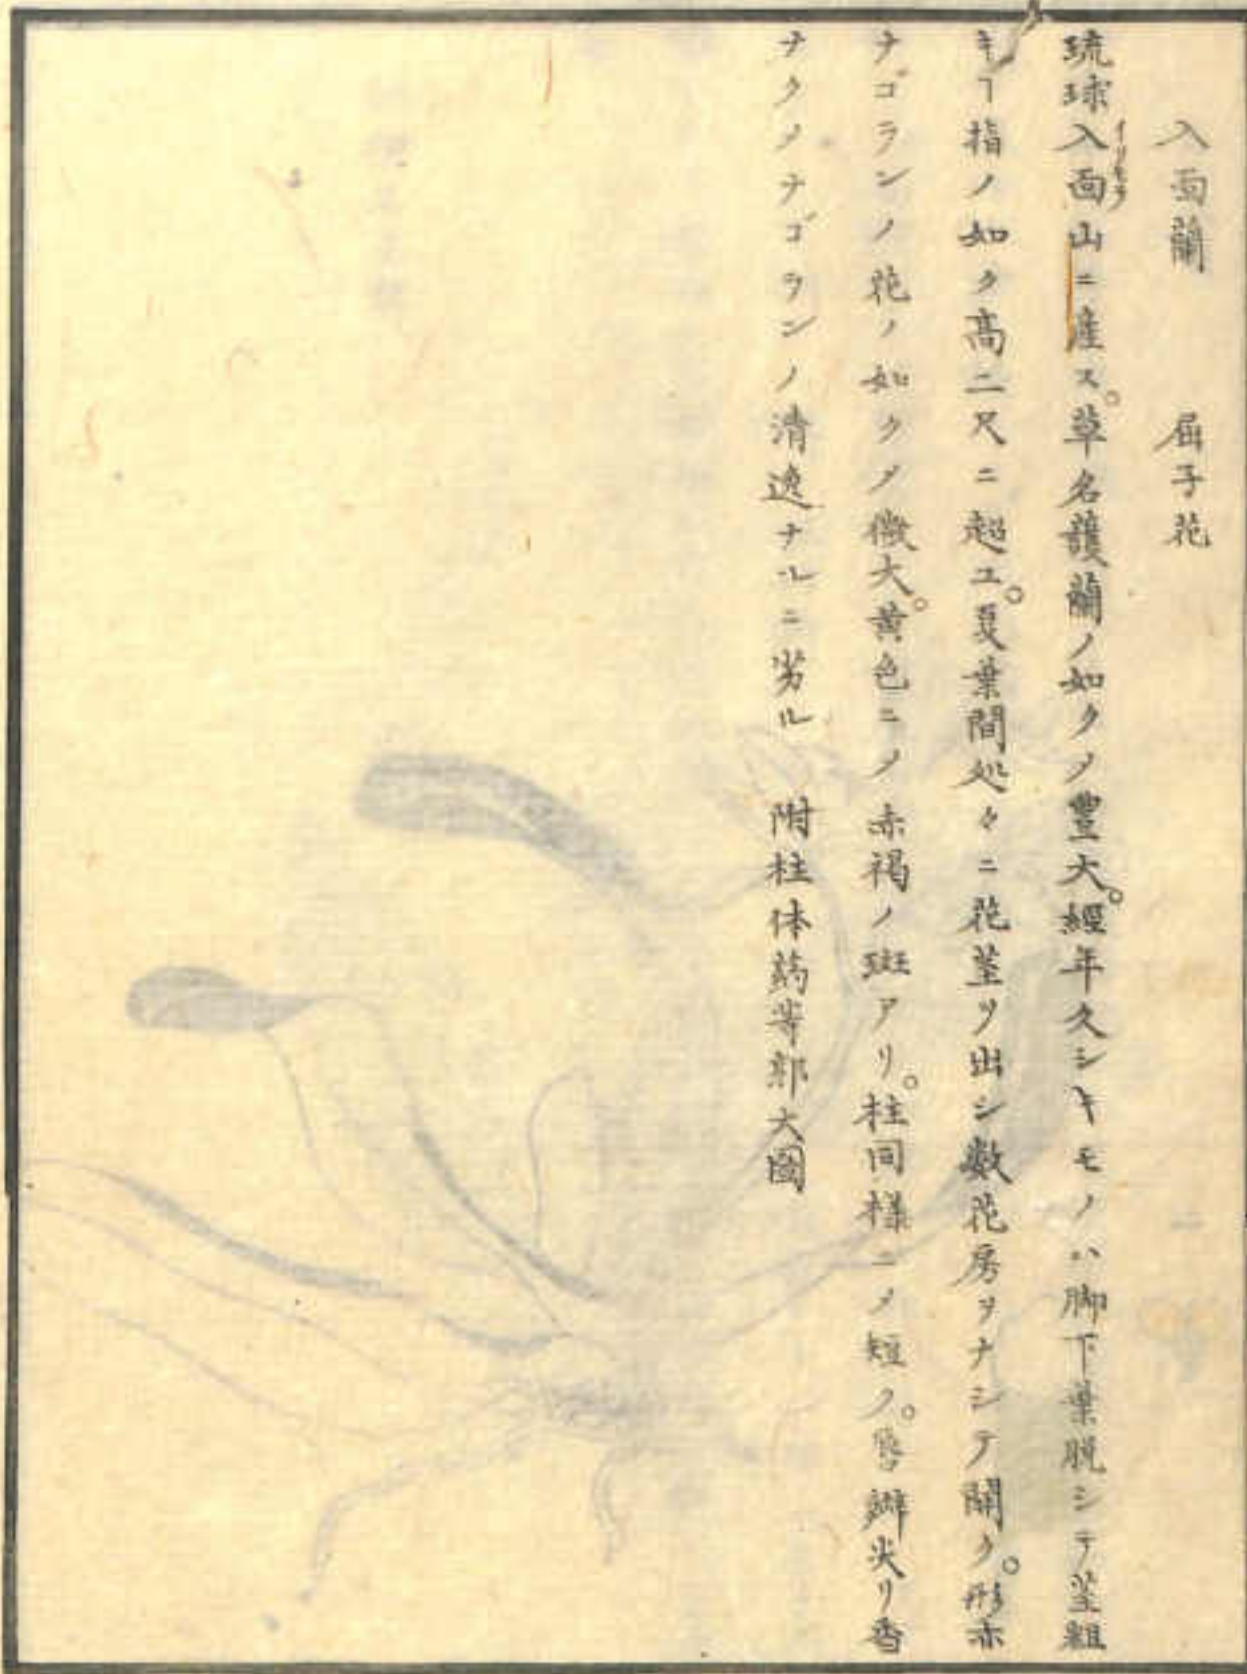 入面蘭　屈子花
琉球入面山ニ産ス。草名護蘭ノ如クメ豊大。經年久シキモノハ脚下葉脱シテ莖粗
キヿ指ノ如ク高二尺ニ超ユ。夏葉間処々ニ花莖ヲ出シ數花房ヲナシテ開ク。形亦
ナゴランノ花ノ如クメ微大。黄色ニメ赤褐ノ斑アリ。柱同様ニメ短ク。唇瓣尖リ香
ナクメナゴランノ清逸ナルニ劣ル　附柱体葯等郭大圖